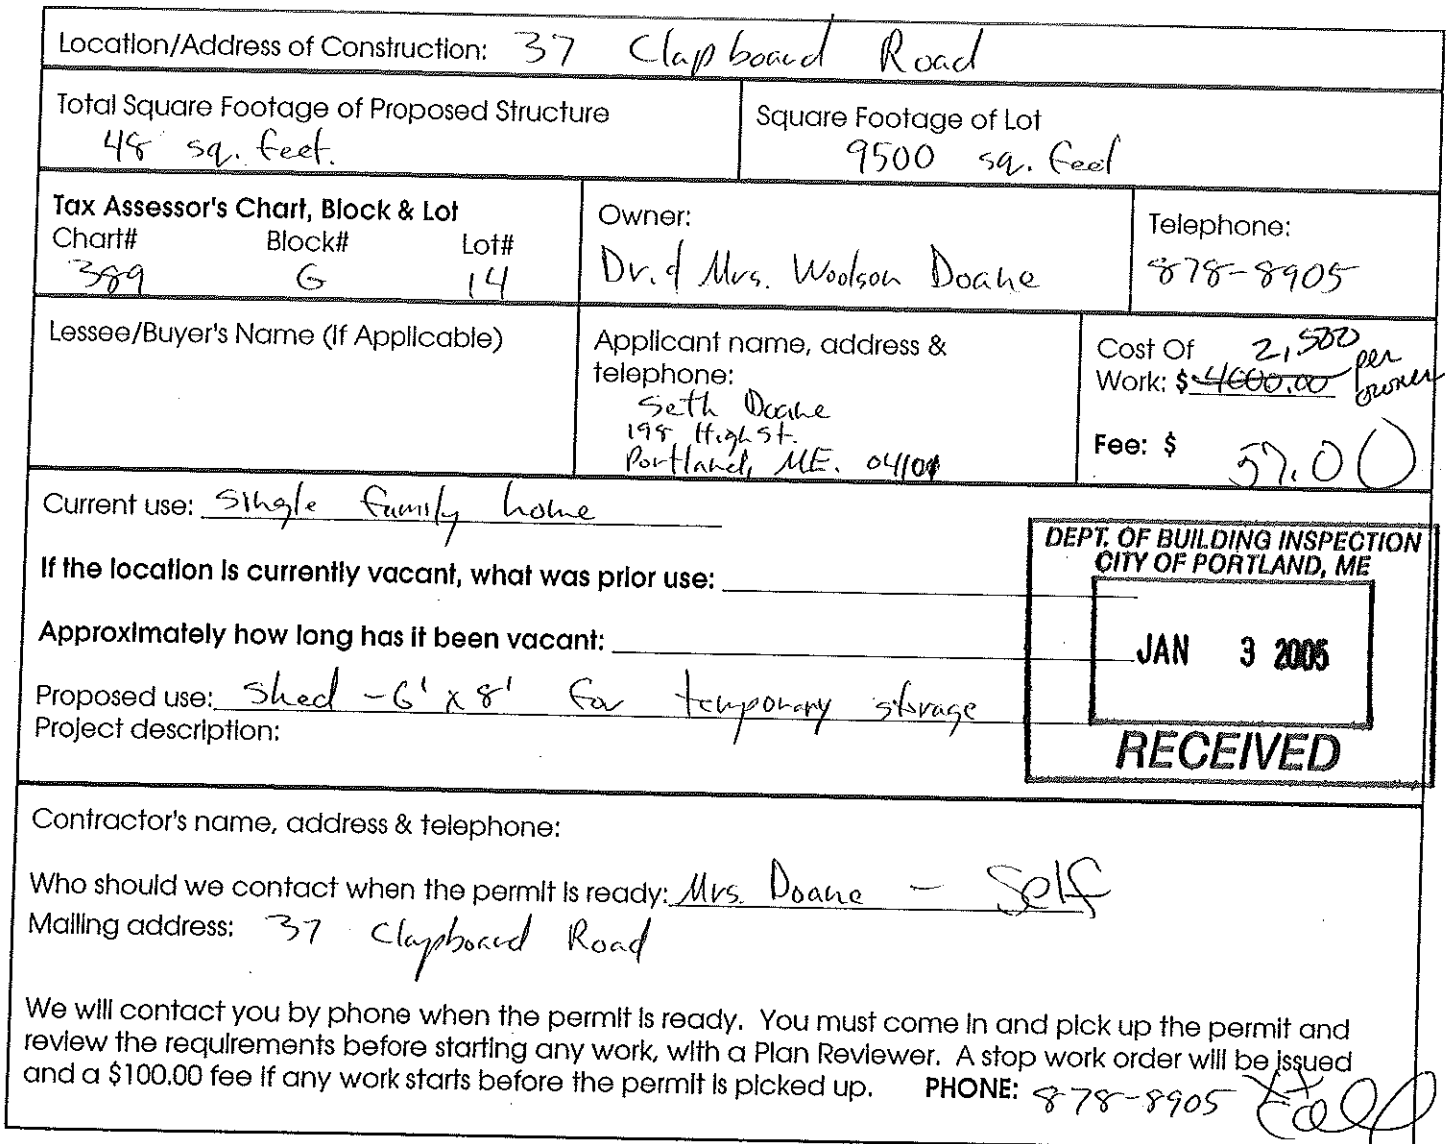 Location/Address of Construction: 37 Clapboard Road
Total Square Footage of Proposed Structure
48 sq. feet.
Square Footage of Lot
9500 sq. feet
Tax Assessor's Chart, Block & Lot
Chart# Block# Lot#
389 G 14
Owner:
Dr. & Mrs. Woolson Doane
Telephone:
878-8905
Lessee/Buyer's Name (If Applicable)
Applicant name, address &
telephone:
Seth Doane
198 High St.
Portland, ME. 04101
Cost Of 2,500 per
Work: $ 4000.00 owner
Fee: $ 57.00
Current use: single family home
If the location is currently vacant, what was prior use:
Approximately how long has it been vacant:
Proposed use: Shed - 6' x 8' for temporary storage
Project description:
DEPT. OF BUILDING INSPECTION
CITY OF PORTLAND, ME
JAN 3 2005
RECEIVED
Contractor's name, address & telephone:
Who should we contact when the permit is ready: Mrs. Doane - Self
Mailing address: 37 Clapboard Road
We will contact you by phone when the permit is ready. You must come in and pick up the permit and
review the requirements before starting any work, with a Plan Reviewer. A stop work order will be issued
and a $100.00 fee if any work starts before the permit is picked up. PHONE: 878-8905 Call